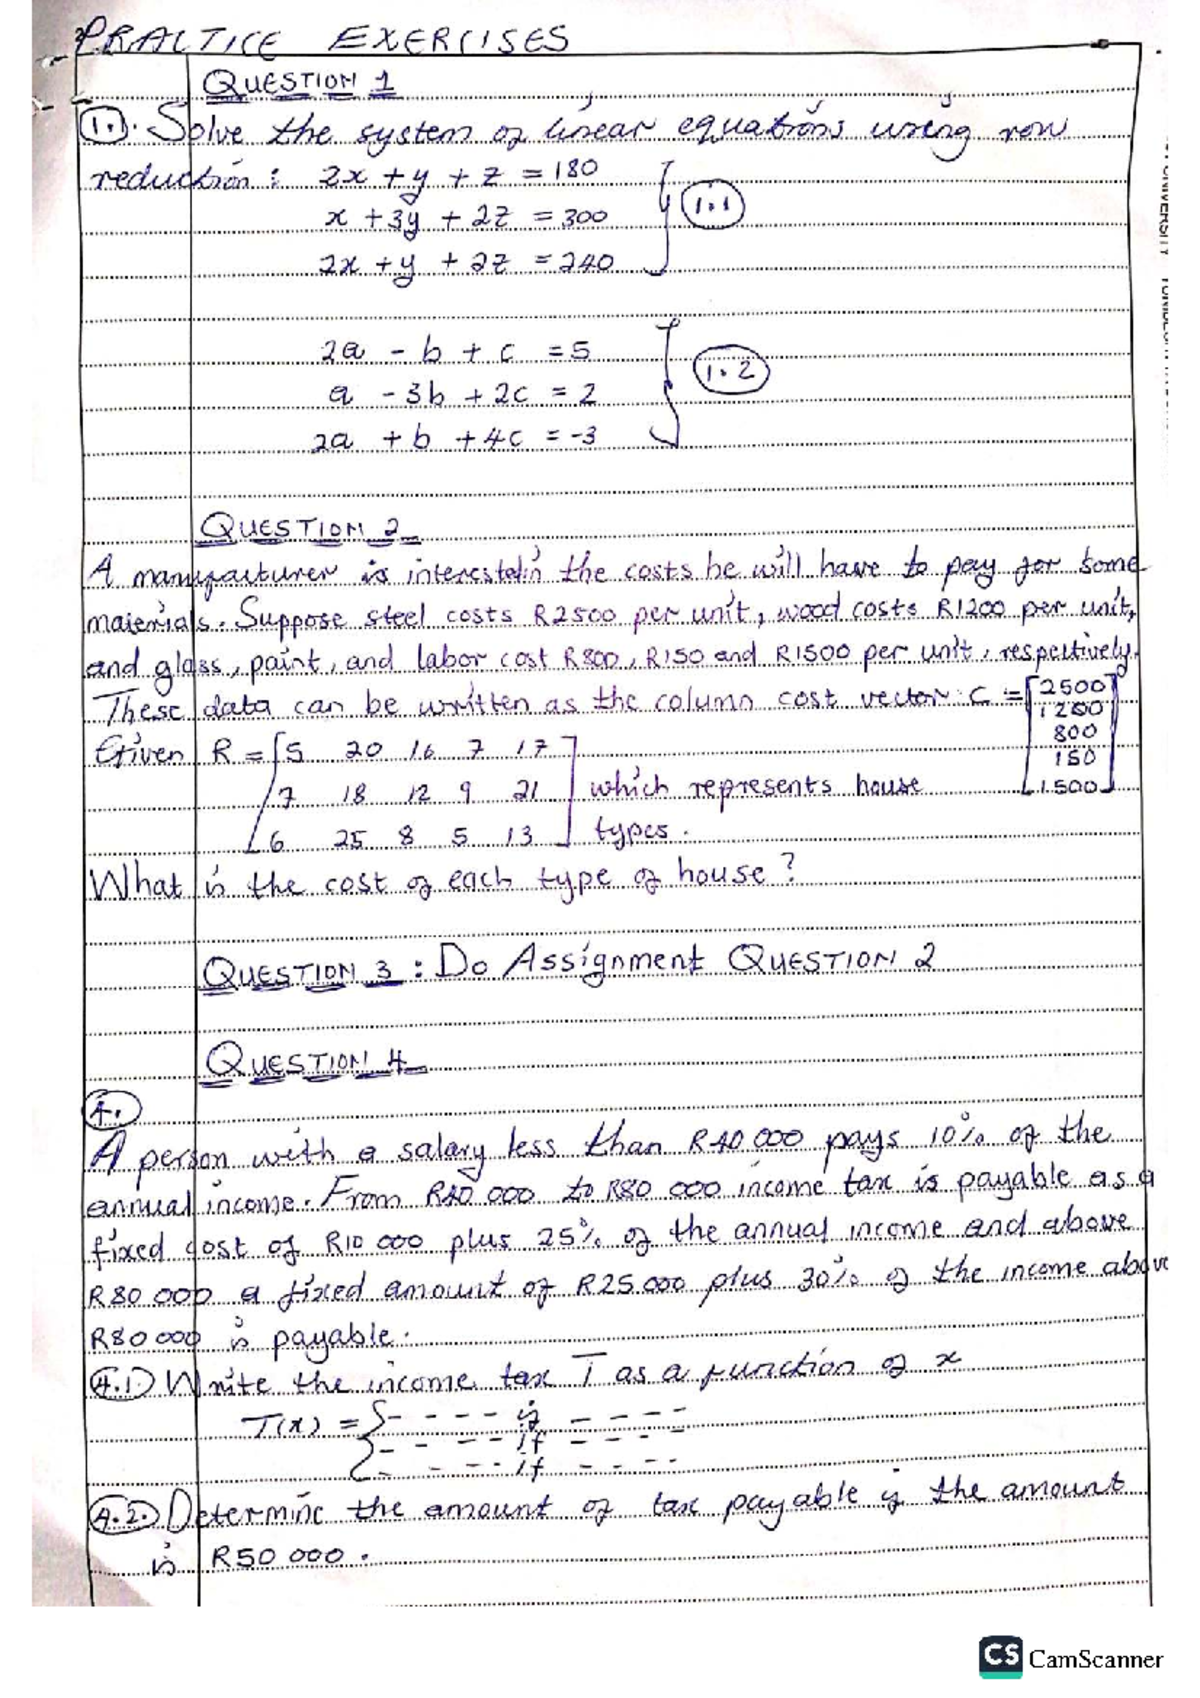 PRACTICE EXERCISES
QUESTION 1
1. Solve the system of linear equations using row
reduction : 2x + y + z = 180
x + 3y + 2z = 300
1.1
2x + y + 2z = 240
2a - b + c = 5
a - 3b + 2c = 2
1.2
2a + b + 4c = -3
QUESTION 2
A manufacturer is interested in the costs he will have to pay for some
materials. Suppose steel costs R2500 per unit, wood costs R1200 per unit,
and glass, paint, and labor cost R800, R150 and R1500 per unit, respectively.
These data can be written as the column cost vector C = [2500
1200
800
150
1500]
Given R = [5 20 16 7 17
7 18 12 9 21
6 25 8 5 13] which represents house
types.
What is the cost of each type of house?
QUESTION 3 : DO ASSIGNMENT QUESTION 2
QUESTION 4
4.
A person with a salary less than R40 000 pays 10% of the
annual income. From R40 000 to R80 000 income tax is payable as a
fixed cost of R10 000 plus 25% of the annual income and above
R80 000 a fixed amount of R25 000 plus 30% of the income above
R80 000 is payable.
4.1 Write the income tax T as a function of x
T(x) = { - - - - if - - - -
- - - - if - - - -
- - - - if - - - -
4.2. Determine the amount of tax payable if the amount
is R50 000.
CS CamScanner